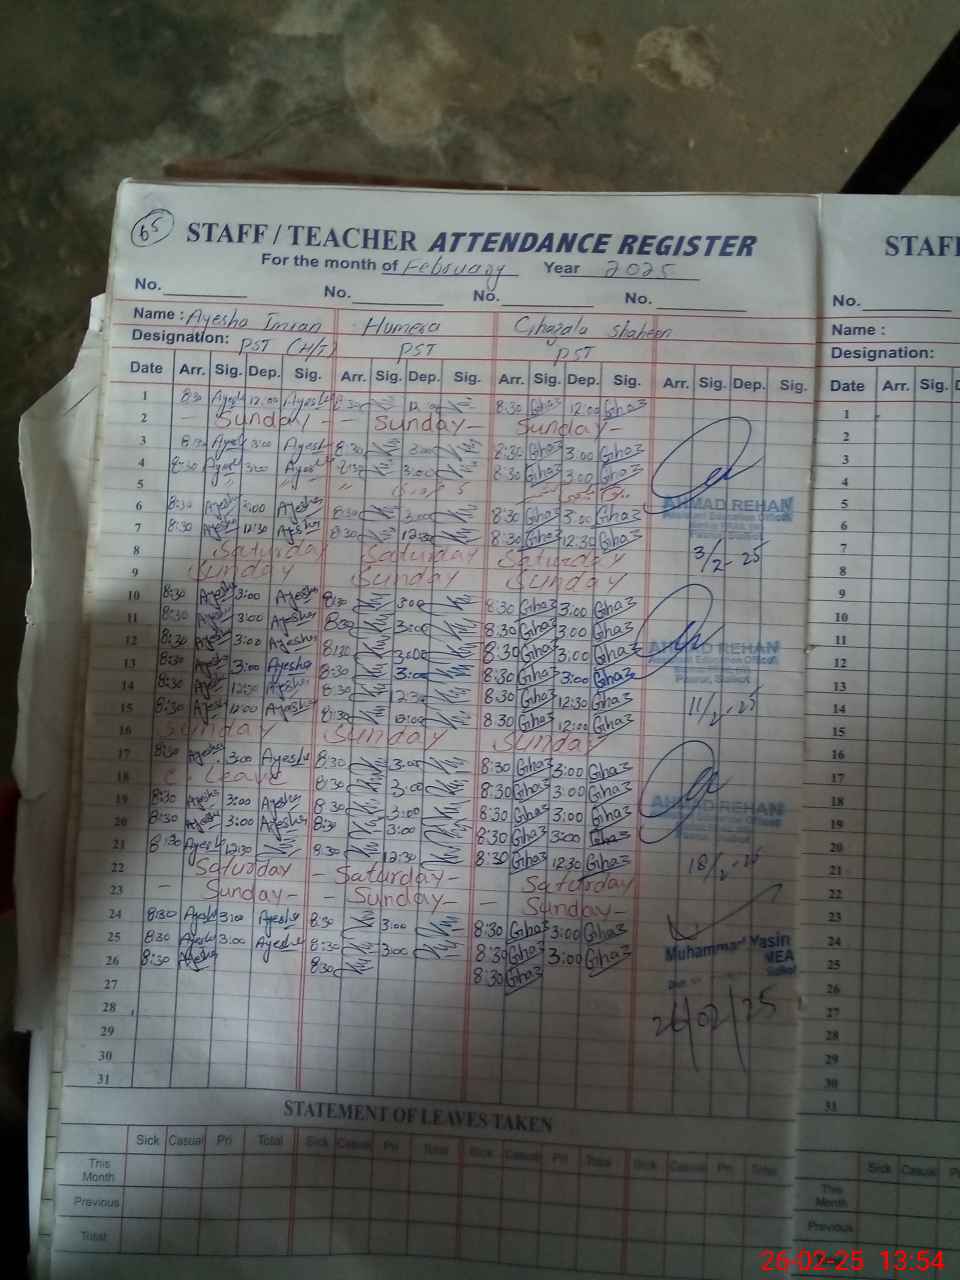 65
STAFF / TEACHER ATTENDANCE REGISTER
For the month of February Year 2025
No. No. No. No.
Name : Ayesha Imran Humera Ghazala Shaheen
Designation: PST (H/T) PST PST
Date Arr. Sig. Dep. Sig. Arr. Sig. Dep. Sig. Arr. Sig. Dep. Sig. Arr. Sig. Dep. Sig.
1 8:30 Ayesha 12:00 Ayesha 8:30 12:00 8:30 Ghaz 12:00 Ghaz
2 Sunday - - Sunday - Sunday -
3 8:30 Ayesha 3:00 Ayesha 8:30 3:00 8:30 Ghaz 3:00 Ghaz
4 8:30 Ayesha 3:00 Ayesha 8:30 3:00 8:30 Ghaz 3:00 Ghaz
5
6 8:30 Ayesha 3:00 Ayesha 8:30 3:00 8:30 Ghaz 3:00 Ghaz
7 8:30 Ayesha 12:30 Ayesha 8:30 12:30 8:30 Ghaz 12:30 Ghaz
8 Saturday Saturday Saturday
9 Sunday Sunday Sunday
10 8:30 Ayesha 3:00 Ayesha 8:30 3:00 8:30 Ghaz 3:00 Ghaz
11 8:30 Ayesha 3:00 Ayesha 8:30 3:00 8:30 Ghaz 3:00 Ghaz
12 8:30 Ayesha 3:00 Ayesha 8:30 3:00 8:30 Ghaz 3:00 Ghaz
13 8:30 Ayesha 3:00 Ayesha 8:30 3:00 8:30 Ghaz 3:00 Ghaz
14 8:30 Ayesha 12:30 Ayesha 8:30 12:30 8:30 Ghaz 12:30 Ghaz
15 8:30 Ayesha 12:00 Ayesha 8:30 12:00 8:30 Ghaz 12:00 Ghaz
16 Sunday Sunday Sunday
17 8:30 Ayesha 3:00 Ayesha 8:30 3:00 8:30 Ghaz 3:00 Ghaz
18 C. Leave 8:30 3:00 8:30 Ghaz 3:00 Ghaz
19 8:30 Ayesha 3:00 Ayesha 8:30 3:00 8:30 Ghaz 3:00 Ghaz
20 8:30 Ayesha 3:00 Ayesha 8:30 3:00 8:30 Ghaz 3:00 Ghaz
21 8:30 Ayesha 12:30 8:30 12:30 8:30 Ghaz 12:30 Ghaz
22 Saturday - Saturday - Saturday
23 - Sunday - Sunday - - Sunday -
24 8:30 Ayesha 3:00 Ayesha 8:30 3:00 8:30 Ghaz 3:00 Ghaz
25 8:30 Ayesha 3:00 Ayesha 8:30 3:00 8:30 Ghaz 3:00 Ghaz
26 8:30 Ayesha 8:30 8:30 Ghaz
27
28
29
30
31
AHMAD REHAN
Assistant Education Officer
3/2-25
AHMAD REHAN
Assistant Education Officer
11/2-25
AHMAD REHAN
Assistant Education Officer
18/2-25
Muhammad Yasin
MEA
26/02/25
STATEMENT OF LEAVES TAKEN
Sick Casual Pri Total Sick Casual Pri Total Sick Casual Pri Total Sick Casual Pri Total
This Month
Previous
Total
STAFF
No.
Name :
Designation:
Date Arr. Sig.
1
2
3
4
5
6
7
8
9
10
11
12
13
14
15
16
17
18
19
20
21
22
23
24
25
26
27
28
29
30
31
Sick Casual
This Month
Previous
26-02-25 13:54